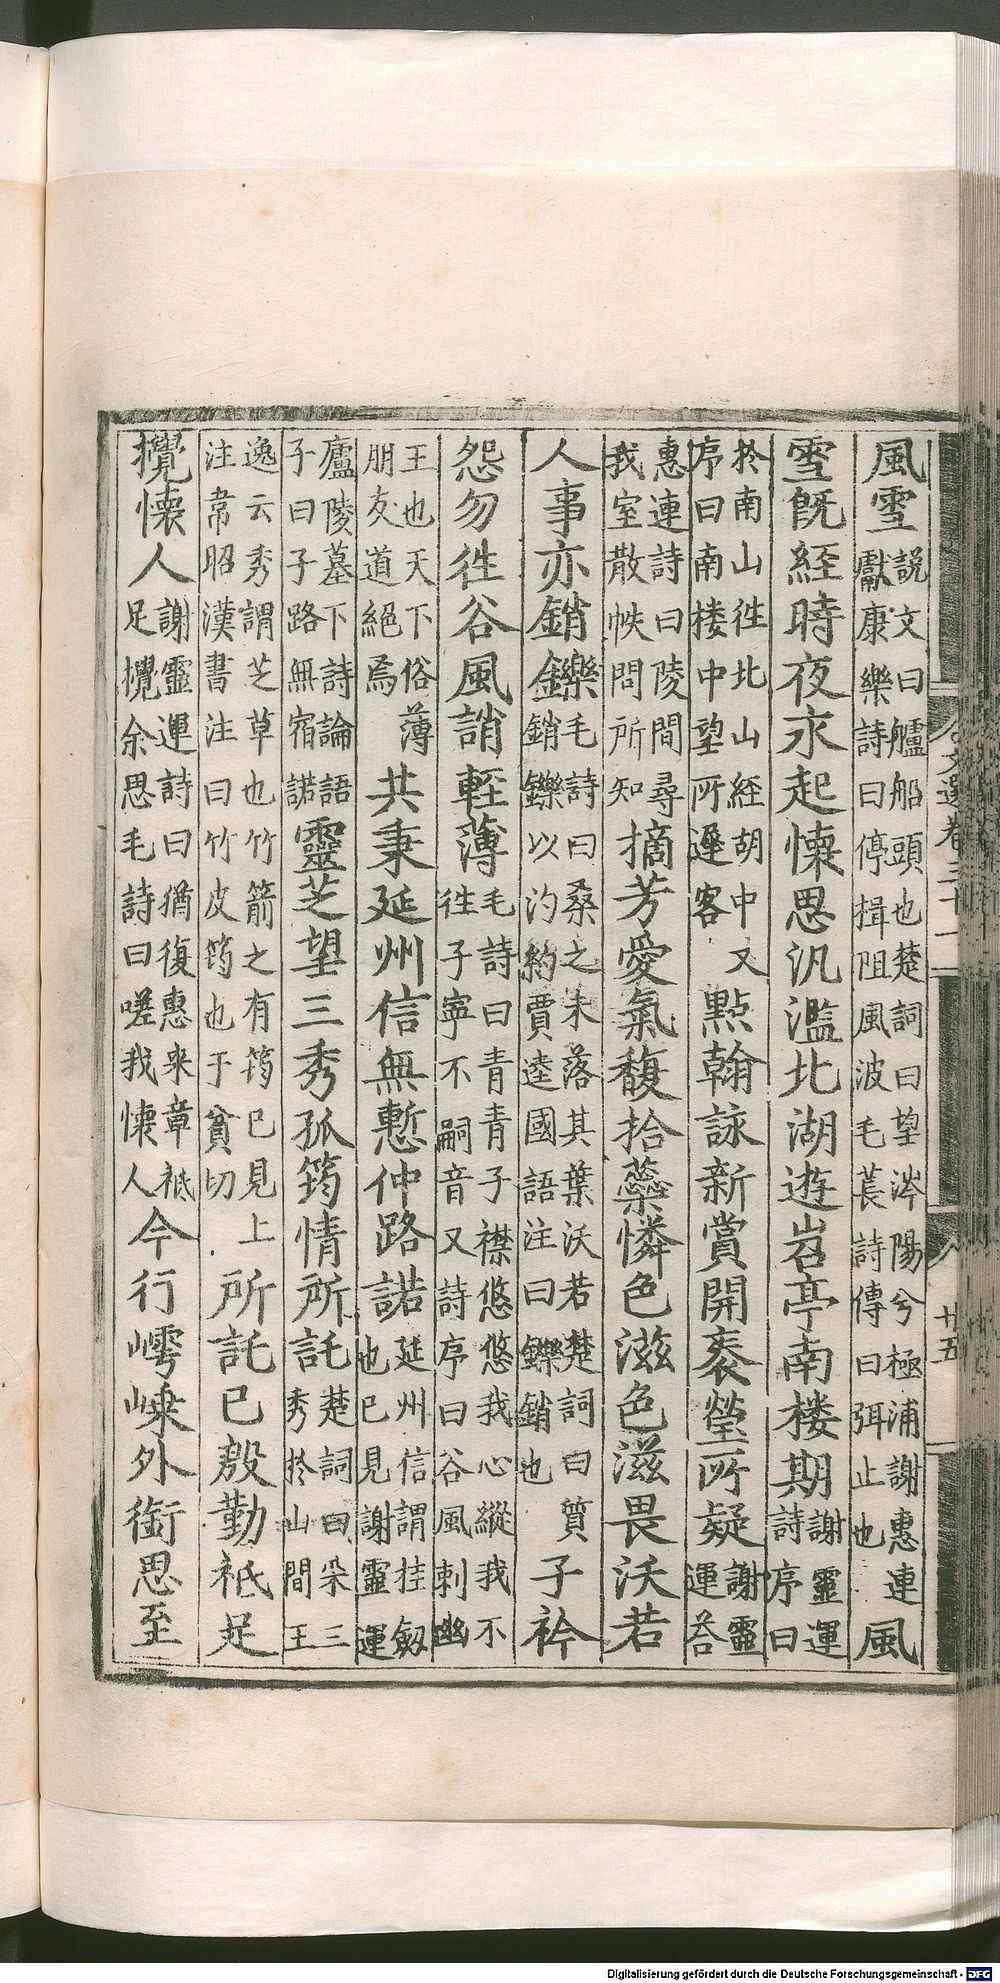 風雪
說文曰艫船頭也楚詞曰望涔陽兮極浦謝惠連
獻康樂詩曰停楫阻風波毛萇詩傳曰弭止也
風
雪既經時夜永起懷思汎濫北湖遊岧亭南楼期
謝靈運
詩序曰
於南山徃北山經胡中又
序曰南楼中望所遲客
點翰詠新賞開袠瑩所疑
謝靈
運荅
惠連詩曰陵間尋
我室散帙問所知
摘芳愛氣馥拾蘂憐色滋色滋畏沃若
人事亦銷鑠
毛詩曰桑之未落其葉沃若楚詞曰質
銷鑠以汋約賈逵國語注曰鑠銷也
子衿
怨勿徃谷風誚輕薄
毛詩曰青青子襟悠悠我心縱我不
徃子寧不嗣音又詩序曰谷風刺幽
王也天下俗薄
朋友道絕焉
共秉延州信無慙仲路諾
延州信謂挂劔
也已見謝靈運
廬陵墓下詩論語
子曰子路無宿諾
靈芝望三秀孤筠情所託
楚詞曰采三
秀於山間王
逸云秀謂芝草也竹箭之有筠已見上
注韋昭漢書注曰竹皮筠也于貧切
所託已殷勤祗足
攪懷人
謝靈運詩曰猶復惠来章祗
足攪余思毛詩曰嗟我懷人
今行嶀嵊外銜思至
文選卷三十一
廿五
Digitalisierung gefördert durch die Deutsche Forschungsgemeinschaft - DFG